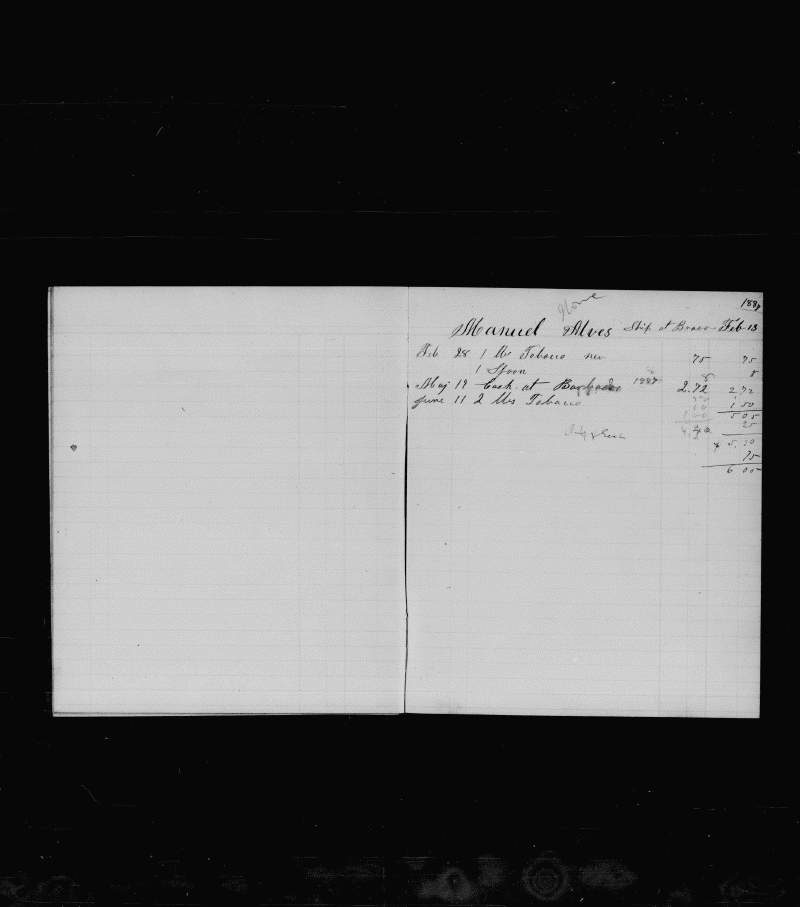 1887
Manuel Alves Ship at Brava Feb 13
Feb 28 1 lbs Tobacco 75 75
1 Spoon 8 8
May 19 Cash at Barbados 1887 2.72 2 72
June 11 2 lbs Tobacco 1 50
5 05
25
5.30
75
6 05